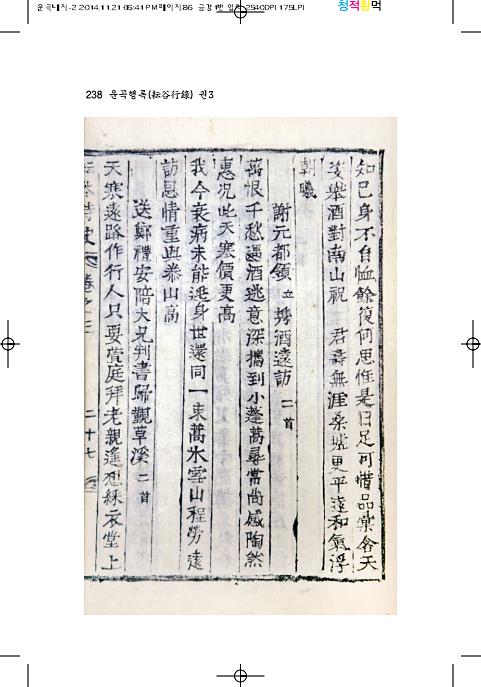 운곡내지-2 2014.11.21 05:41 PM 페이지86
2540DPI 175LPI
청적황먹
238 운곡행록(耘谷行錄) 권3
知已身不自恤餘復何思惟是日足可惜品彙各天
浚舉酒對南山祝 君壽無涯桑墟更平遠和氣浮
朝曦
謝元都領 立 携酒遠訪 二首
萬恨千愁遇酒逃意深携到小蓬蒿尋常尚感陶然
惠况此天寒價更高
我今衰病未能逃身世還同一束蒿氷雪山程勞遠
訪恩情重與泰山高
送鄭禮安陪大兄判書歸覲草溪 二首
天寒遠路作行人只要萱庭拜老親遙想綵衣堂上
耘谷詩史 卷之三 二十七